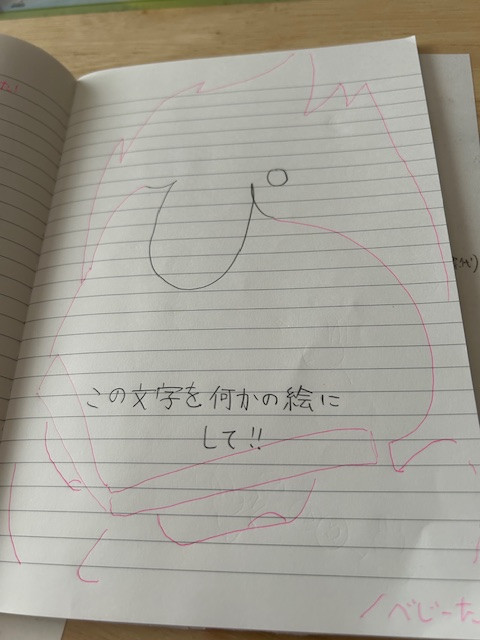 この文字を何かの絵に
して!!
べじーた